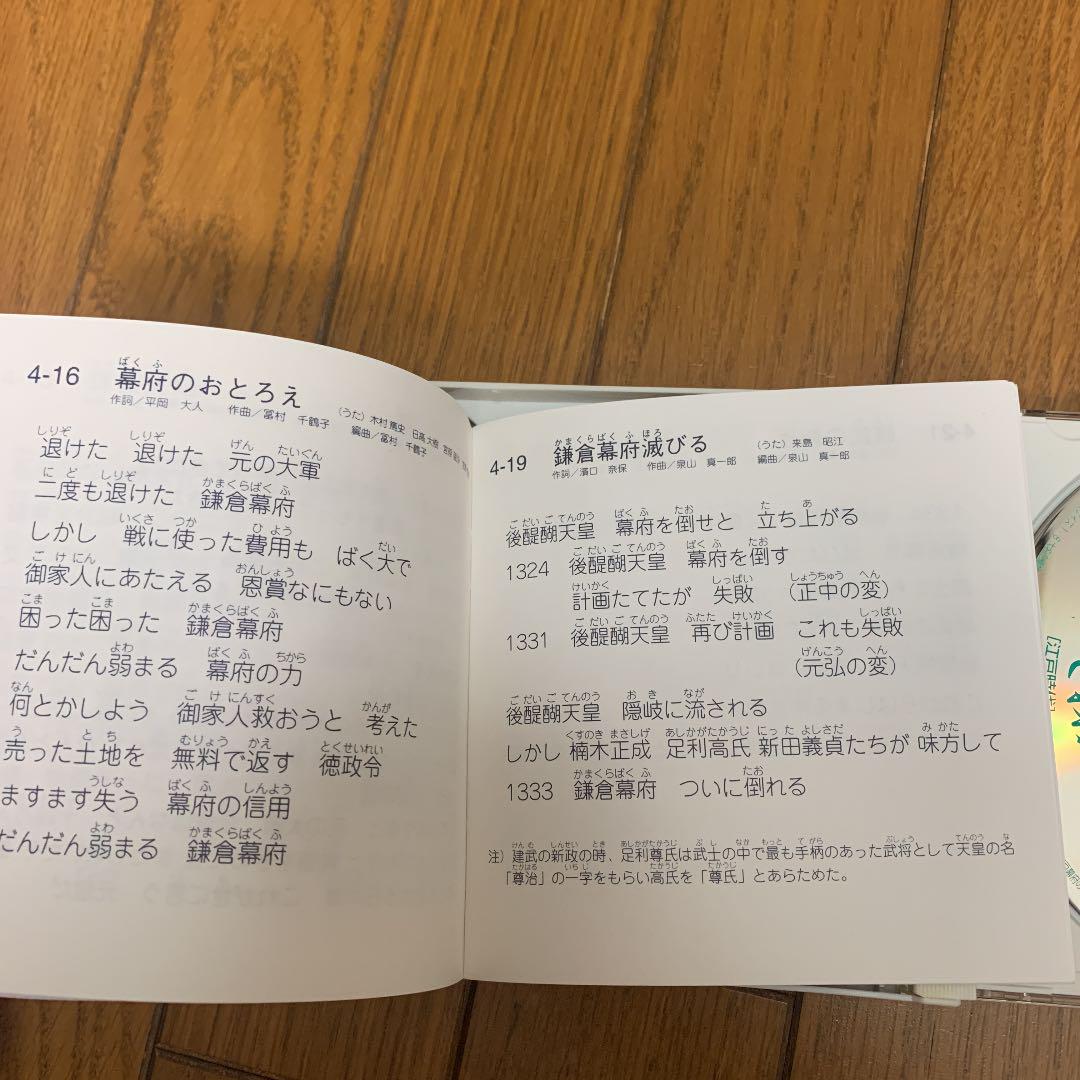 4-16 幕府のおとろえ
作詞／平岡 大人 作曲／冨村 千鶴子 編曲／冨村 千鶴子
(うた) 木村 篤史 日高 大樹
退けた 退けた 元の大軍
二度も退けた 鎌倉幕府
しかし 戦に使った費用も ばく大で
御家人にあたえる 恩賞なにもない
困った困った 鎌倉幕府
だんだん弱まる 幕府の力
何とかしよう 御家人救おうと 考えた
売った土地を 無料で返す 徳政令
ますます失う 幕府の信用
だんだん弱まる 鎌倉幕府
4-19 鎌倉幕府滅びる
(うた) 来島 昭江
作詞／濱口 奈保 作曲／泉山 真一郎 編曲／泉山 真一郎
後醍醐天皇 幕府を倒せと 立ち上がる
1324 後醍醐天皇 幕府を倒す
計画たてたが 失敗 (正中の変)
1331 後醍醐天皇 再び計画 これも失敗
(元弘の変)
後醍醐天皇 隠岐に流される
しかし 楠木正成 足利高氏 新田義貞たちが 味方して
1333 鎌倉幕府 ついに倒れる
注) 建武の新政の時、足利尊氏は武士の中で最も手柄のあった武将として天皇の名
「尊治」の一字をもらい高氏を「尊氏」とあらためた。